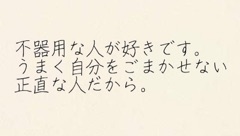 不器用な人が好きです。
うまく自分をごまかせない
正直な人だから。